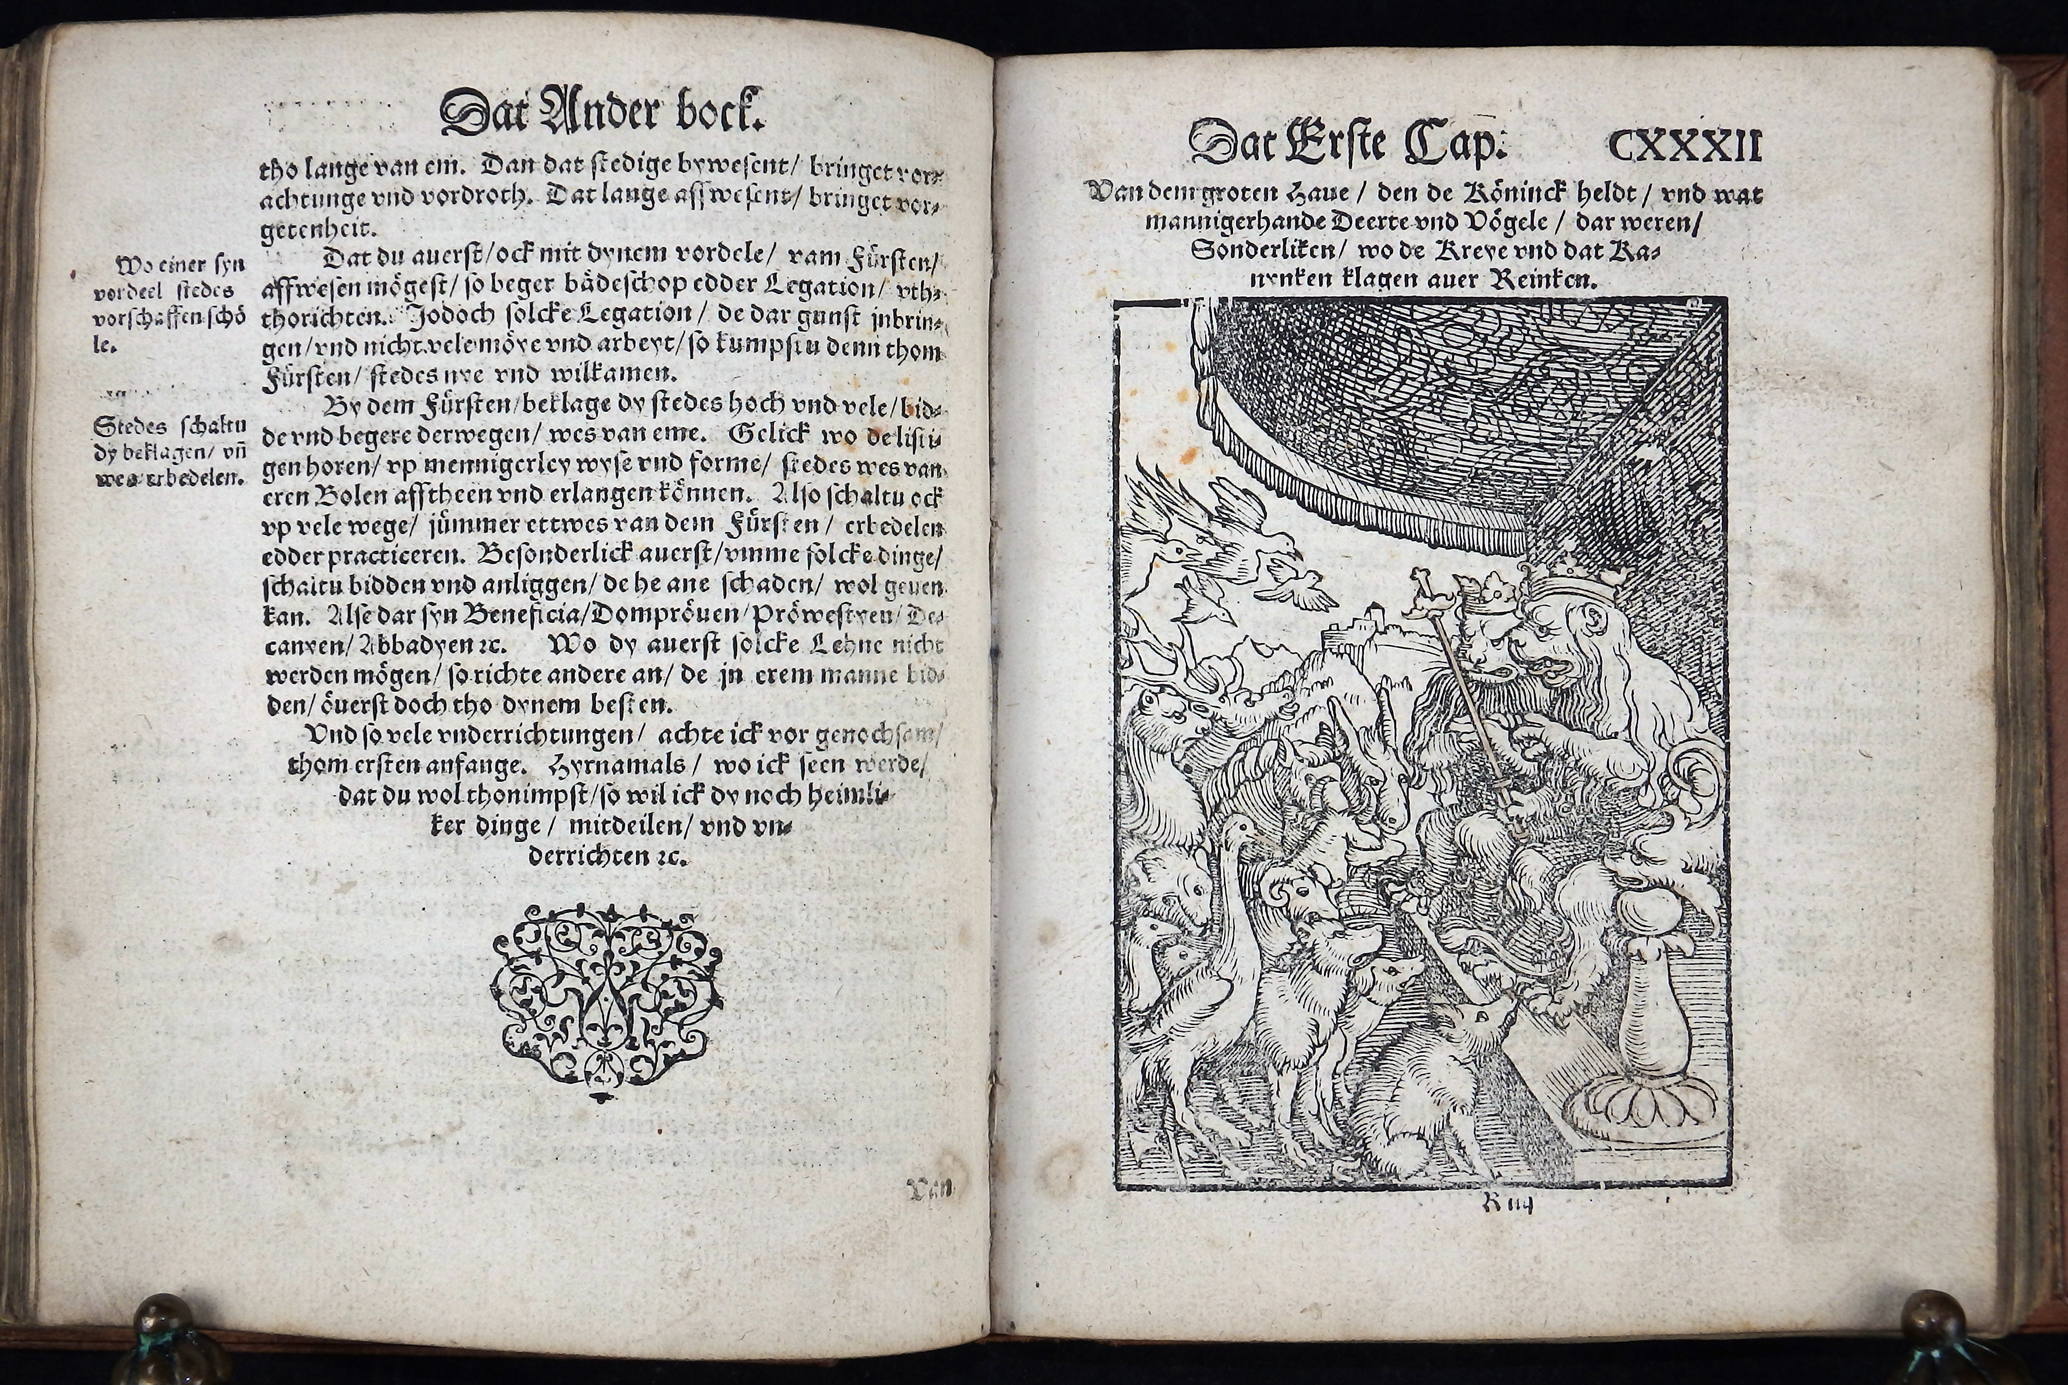 Dat Ander bock.
tho lange van em. Dan dat stedige bywesent/ bringet vor⸗
achtunge vnd vordroth. Dat lange affwesent/ bringet vor⸗
getenheit.
Dat du auerst/ ock mit dynem vordele/ vam Fürsten/
affwesen mögest/ so beger bådeschop edder Legation/ vth⸗
thorichten. Jodoch solcke Legation/ de dar gunst jnbrin⸗
gen/ vnd nicht vele möye vnd arbeyt/ so kumpstu denn thom
Fürsten/ stedes nye vnd wilkamen.
By dem Fürsten/ beklage dy stedes hoch vnd vele/ bid⸗
de vnd begere derwegen/ wes van eme. Gelick wo de listi⸗
gen horen/ vp mennigerley wyse vnd forme/ stedes wes van
eren Bolen afftheen vnd erlangen können. Also schaltu ock
vp vele wege/ jümmer ettwes van dem Fürsten/ erbedelen
edder practiceren. Besonderlick auerst/ vmme solcke dinge/
schaltu bidden vnd anliggen/ de he ane schaden/ wol geuen
kan. Alse dar syn Beneficia/ Dompröuen/ Pröwestyen/ De⸗
canyen/ Abbadyen ꝛc. Wo dy auerst solcke Lehne nicht
werden mögen/ so richte andere an/ de jn erem manne bid⸗
den/ öuerst doch tho dynem besten.
Vnd so vele vnderrichtungen/ achte ick vor genochsam/
thom ersten anfange. Hyrnamals/ wo ick seen werde/
dat du wol thonimpst/ so wil ick dy noch heimli⸗
ker dinge/ mitdeilen/ vnd vn⸗
derrichten ꝛc.
Wo einer syn
vordeel stedes
vorschaffen schö
le.
Stedes schaltu
dy beklagen/ vñ
wes erbedelen.
Van
Dat Erste Cap: CXXXII
Van dem groten Haue/ den de Köninck heldt/ vnd wat
mannigerhande Deerte vnd Vögele/ dar weren/
Sonderliken/ wo de Kreye vnd dat Ka⸗
nynken klagen auer Reinken.
R iiij